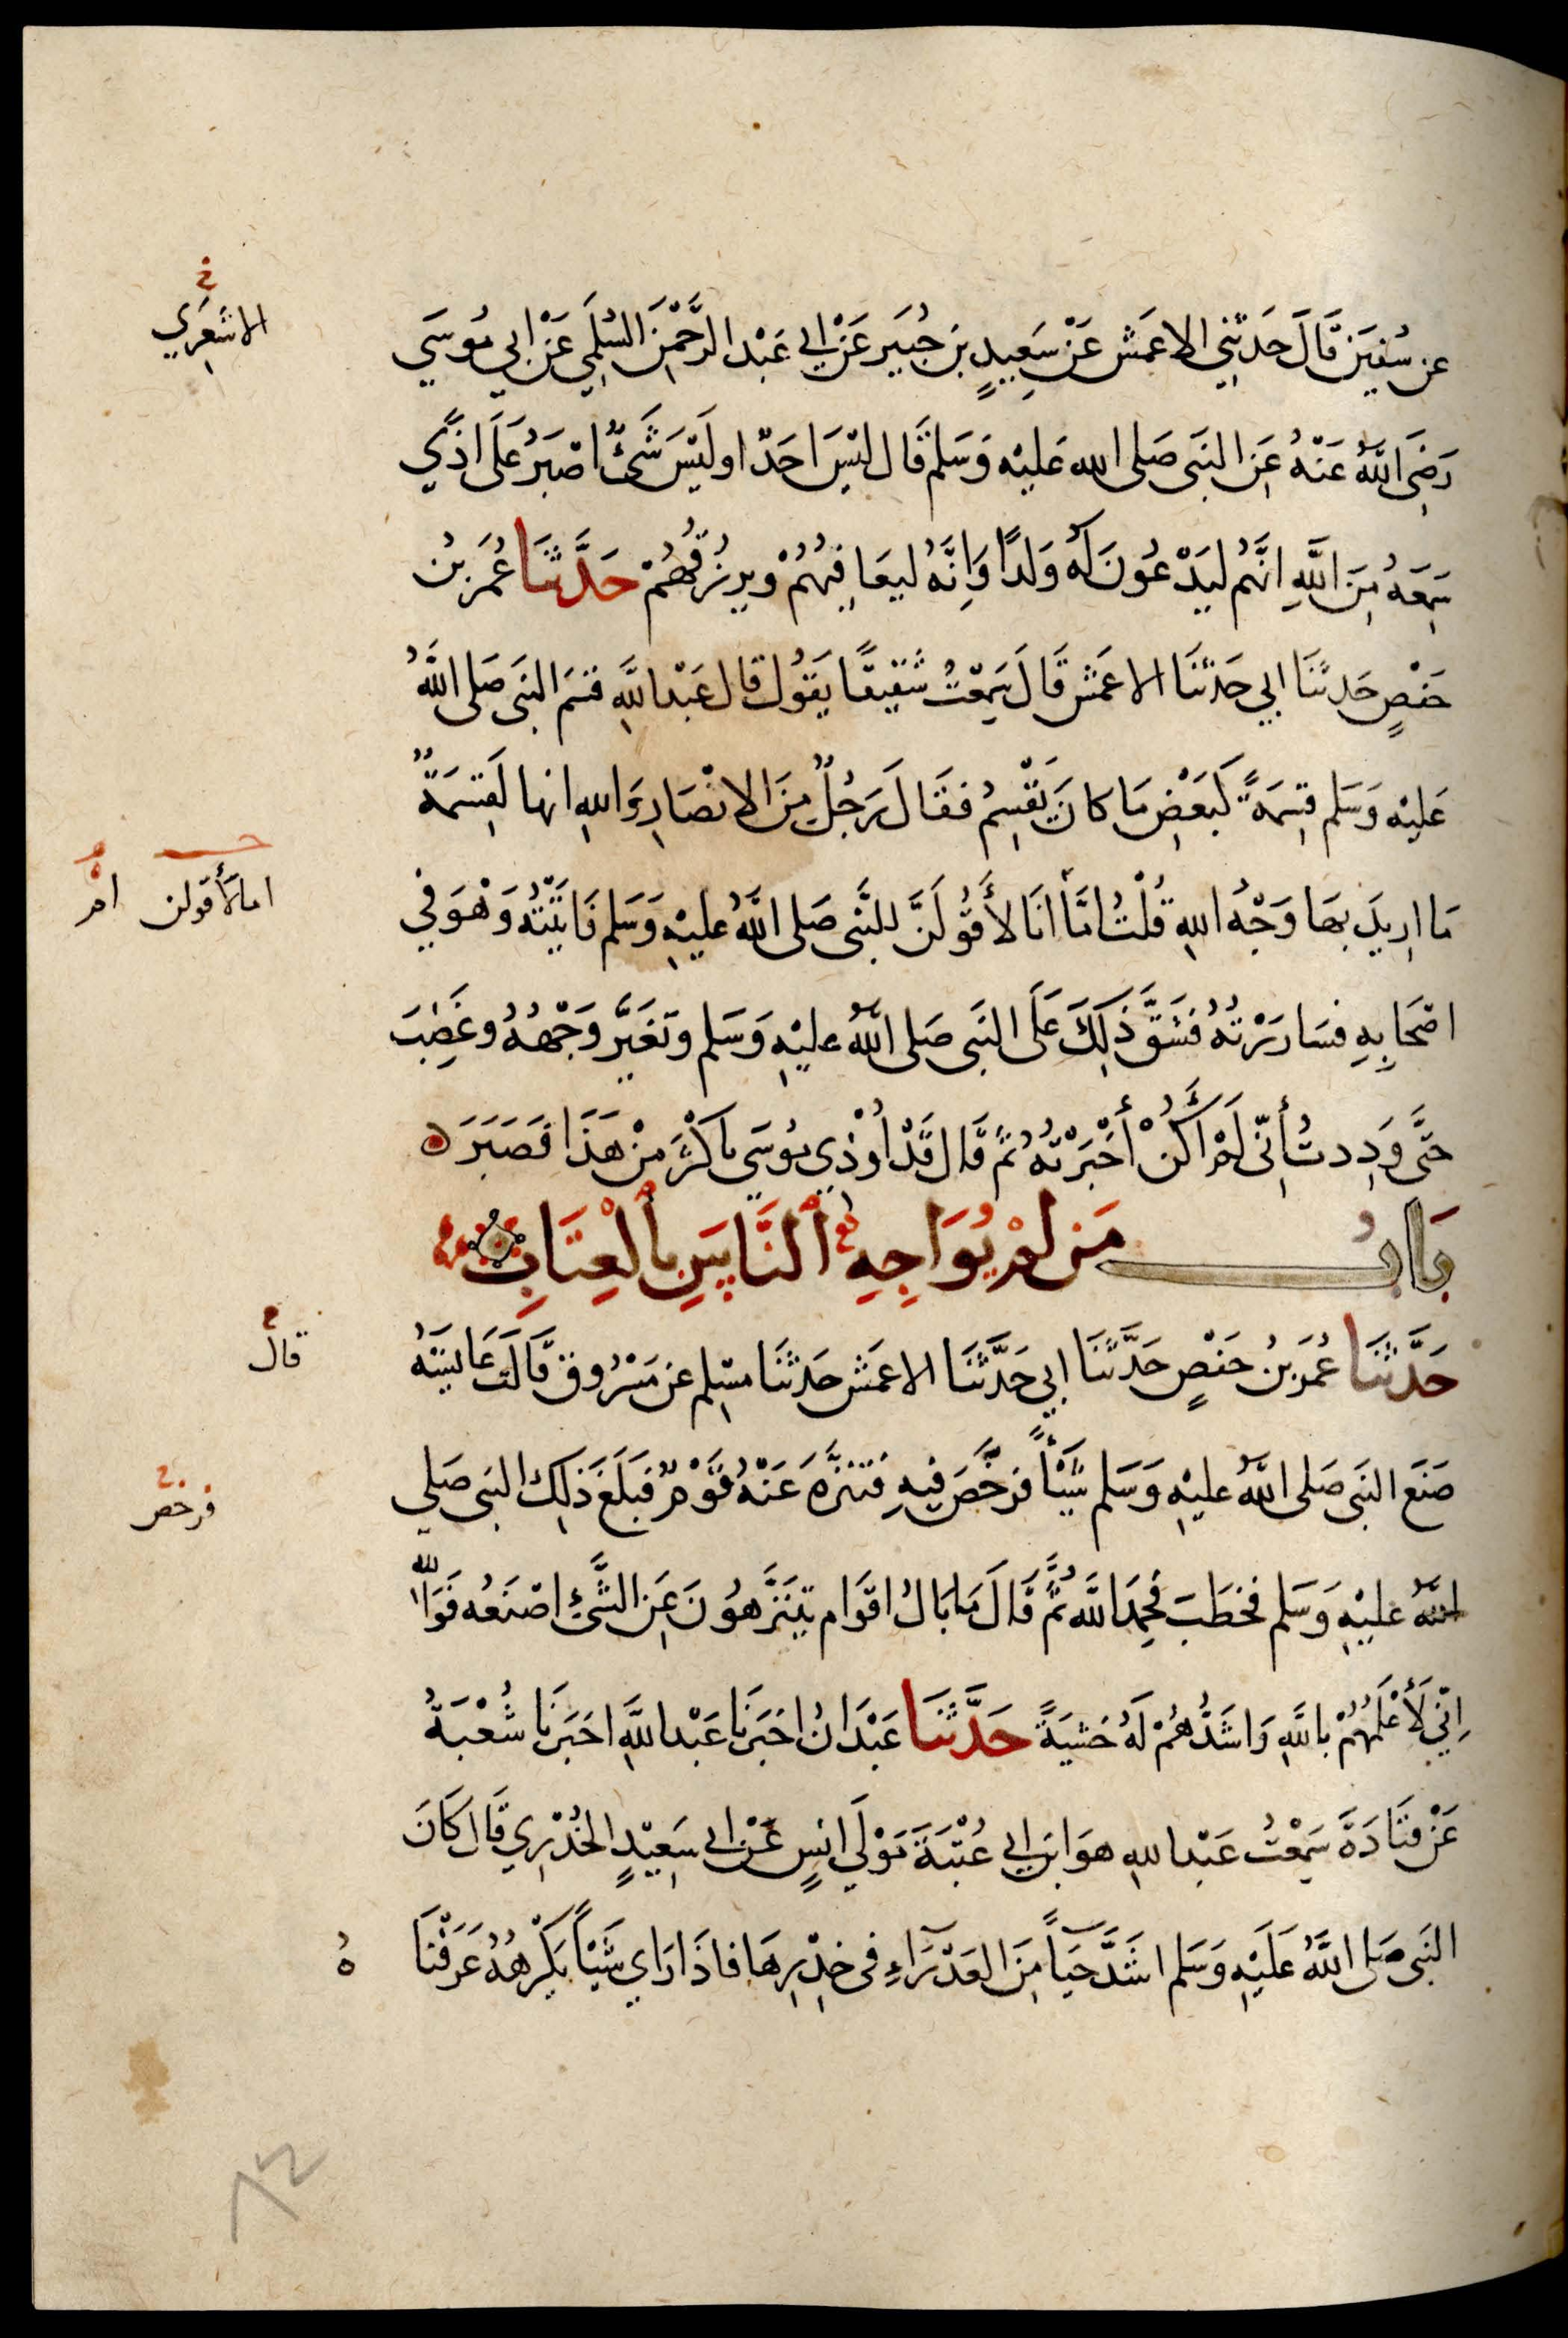 عن سُفيَن قَالَ حَدّثني الاعمَش عَنْ سَعِيدِ بنِ جُبَيَر عَنْ ابي عَبْد الرَّحْمٰنِ السُلَمِي عَنْ ابي مُوسَي
الاشعَرِي
رَضِيَ اللَّهُ عَنْهُ عَنِ النبَى صَلى الله عَليْه وَسَلم قَال ليْسَ احَدٌ او لَيْسَ شَىْءٌ اصْبَرُ عَلَى اذًي
سَمِعَهُ مِنَ اللَّهِ انَّهُم ليَدْعُونَ لَهُ وَلَدًا وَاِنَّهُ ليعَافِيهُمْ ويرزُقُهُمْ حَدَّثنَا عُمَر بنُ
حَفْصٍ حَدثَنَا ابي حَدثَنَا الاعمَش قَالَ سَمِعْتُ شَقيقًا يَقُول قال عَبْد اللَّهِ قسَمَ النبَى صَلى اللَّهُ
عَليْه وَسَلم قِسْمَةً كَبَعْضِ مَا كانَ يَقْسِمُ فقَالَ رَجُلٌ مِنَ الانْصَارِ وَاللهِ انها لَقِسْمَةٌ
مَا ارِيدَ بهَا وَجْهُ اللهِ قُلْتُ امَّا انَا لأَقُولَنَّ للنَّبى صَلى اللَّهُ عليْهِ وَسَلم فَاتَيْتُه وَهْوَ فِي
اما لأقولن امَ
اصْحَابِهِ فسَارَرْتُهُ فَشَقَّ ذَلِكَ عَلَى النبَى صَلى اللَّهُ عليْهِ وَسَلم وتَغَيَّر وَجْههُ وغَضِبَ
حتَّى وَدِدتُ أَنِّى لَمْ اَكُنْ أَخْبَرْتُهُ ثُمَّ قَال قَدْ اُوْذِي مُوسَي باكْثَرَ مِنْ هَذَا فَصَبَرَ ه
بَابُ مَن لمْ يُوَاجِهِ النَّاسَ بِالْعِتَابِ
حَدَّثنَا عُمَر بنُ حَفصٍ حَدَّثنَا ابي حَدَّثنَا الاعمَش حَدثنَا مسْلِم عن مَسْرُوق قَالَت عَايشَة
قال
صَنَع النبَى صَلى اللَّهُ عليْهِ وَسَلم شَيْئاً فرَخَّصَ فيهِ فتنَزَّهَ عَنْهُ قَوْمٌ فبَلَغَ ذَلِك النبى صَلي
فرخص
اللَّهُ عليْهِ وَسَلم فخطَبَ فحَمِدَ اللَّهَ ثُمَّ قَالَ مَا بَالُ اقوَام يتَنَزَّهُونَ عَنِ الشَّىْءِ اصْنَعُه فَوَاللَّهِ
اِنِّي لَأَعْلَمُهُمْ باللَّهِ وَاشَدُّهُمْ لَهُ خَشيَةً حَدَّثنَا عَبْدَانُ اخبَرَنَا عَبْد اللَّهِ اخبَرَنا شُعْبَةُ
عَنْ قتَادَةَ سَمِعْتُ عَبْد اللهِ هوَ ابن ابي عُتْبَةَ مَوْلَي انسٍ عَنْ ابي سَعِيْدٍ الخُدْرِي قَال كَانَ
النبَى صَلى اللَّهُ عَلَيْهِ وَسَلم اشَدَّ حَيَآءً مِنَ العَذْرَآءِ فى خِدْرِهَا فاذَا رَاي شَيْئاً يَكْرَهُهُ عَرَفْنَا
هُ
٨٢